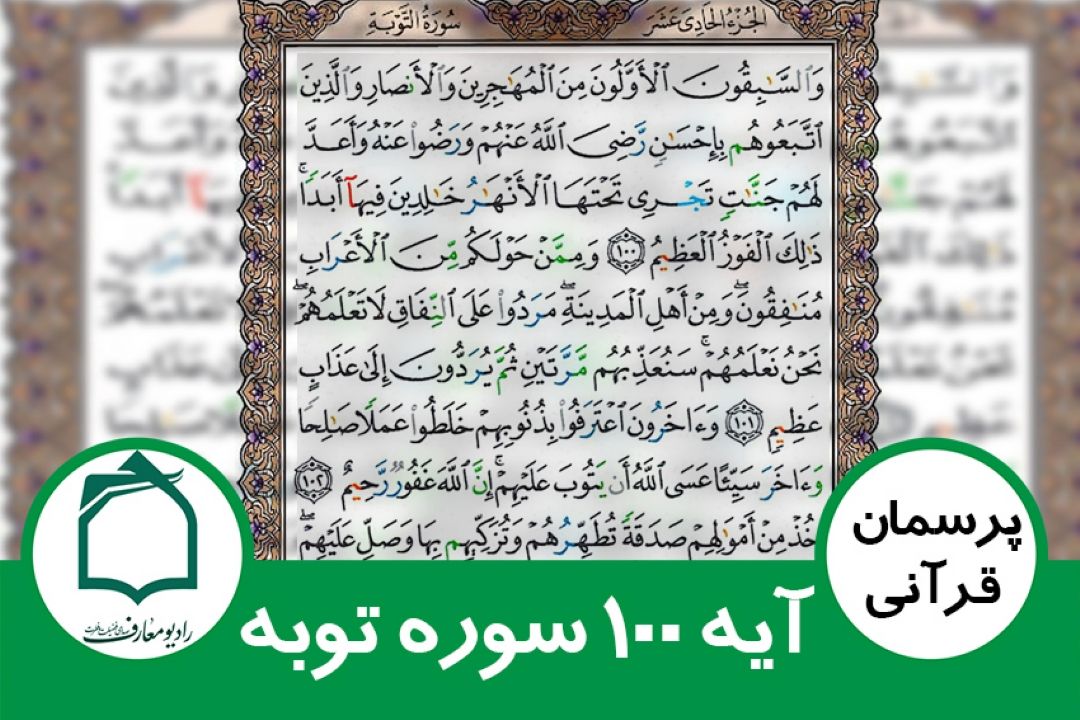 الجُزْءُ الحَادِي عَشَرَ
سُورَةُ التَّوْبَةِ
وَٱلسَّٰبِقُونَ ٱلْأَوَّلُونَ مِنَ ٱلْمُهَٰجِرِينَ وَٱلْأَنصَارِ وَٱلَّذِينَ
ٱتَّبَعُوهُم بِإِحْسَٰنٍ رَّضِىَ ٱللَّهُ عَنْهُمْ وَرَضُوا۟ عَنْهُ وَأَعَدَّ
لَهُمْ جَنَّٰتٍ تَجْرِى تَحْتَهَا ٱلْأَنْهَٰرُ خَٰلِدِينَ فِيهَآ أَبَدًا ۚ
ذَٰلِكَ ٱلْفَوْزُ ٱلْعَظِيمُ ١٠٠ وَمِمَّنْ حَوْلَكُم مِّنَ ٱلْأَعْرَابِ
مُنَٰفِقُونَ ۖ وَمِنْ أَهْلِ ٱلْمَدِينَةِ ۖ مَرَدُوا۟ عَلَى ٱلنِّفَاقِ لَا تَعْلَمُهُمْ ۖ
نَحْنُ نَعْلَمُهُمْ ۚ سَنُعَذِّبُهُم مَّرَّتَيْنِ ثُمَّ يُرَدُّونَ إِلَىٰ عَذَابٍ
عَظِيمٍ ١٠١ وَءَاخَرُونَ ٱعْتَرَفُوا۟ بِذُنُوبِهِمْ خَلَطُوا۟ عَمَلًا صَٰلِحًا
وَءَاخَرَ سَيِّئًا عَسَى ٱللَّهُ أَن يَتُوبَ عَلَيْهِمْ ۚ إِنَّ ٱللَّهَ غَفُورٌ رَّحِيمٌ ١٠٢
خُذْ مِنْ أَمْوَٰلِهِمْ صَدَقَةً تُطَهِّرُهُمْ وَتُزَكِّيهِم بِهَا وَصَلِّ عَلَيْهِمْ ۖ
پرسمان
قرآنی
رادیو معارف
آیه ۱۰۰ سوره توبه